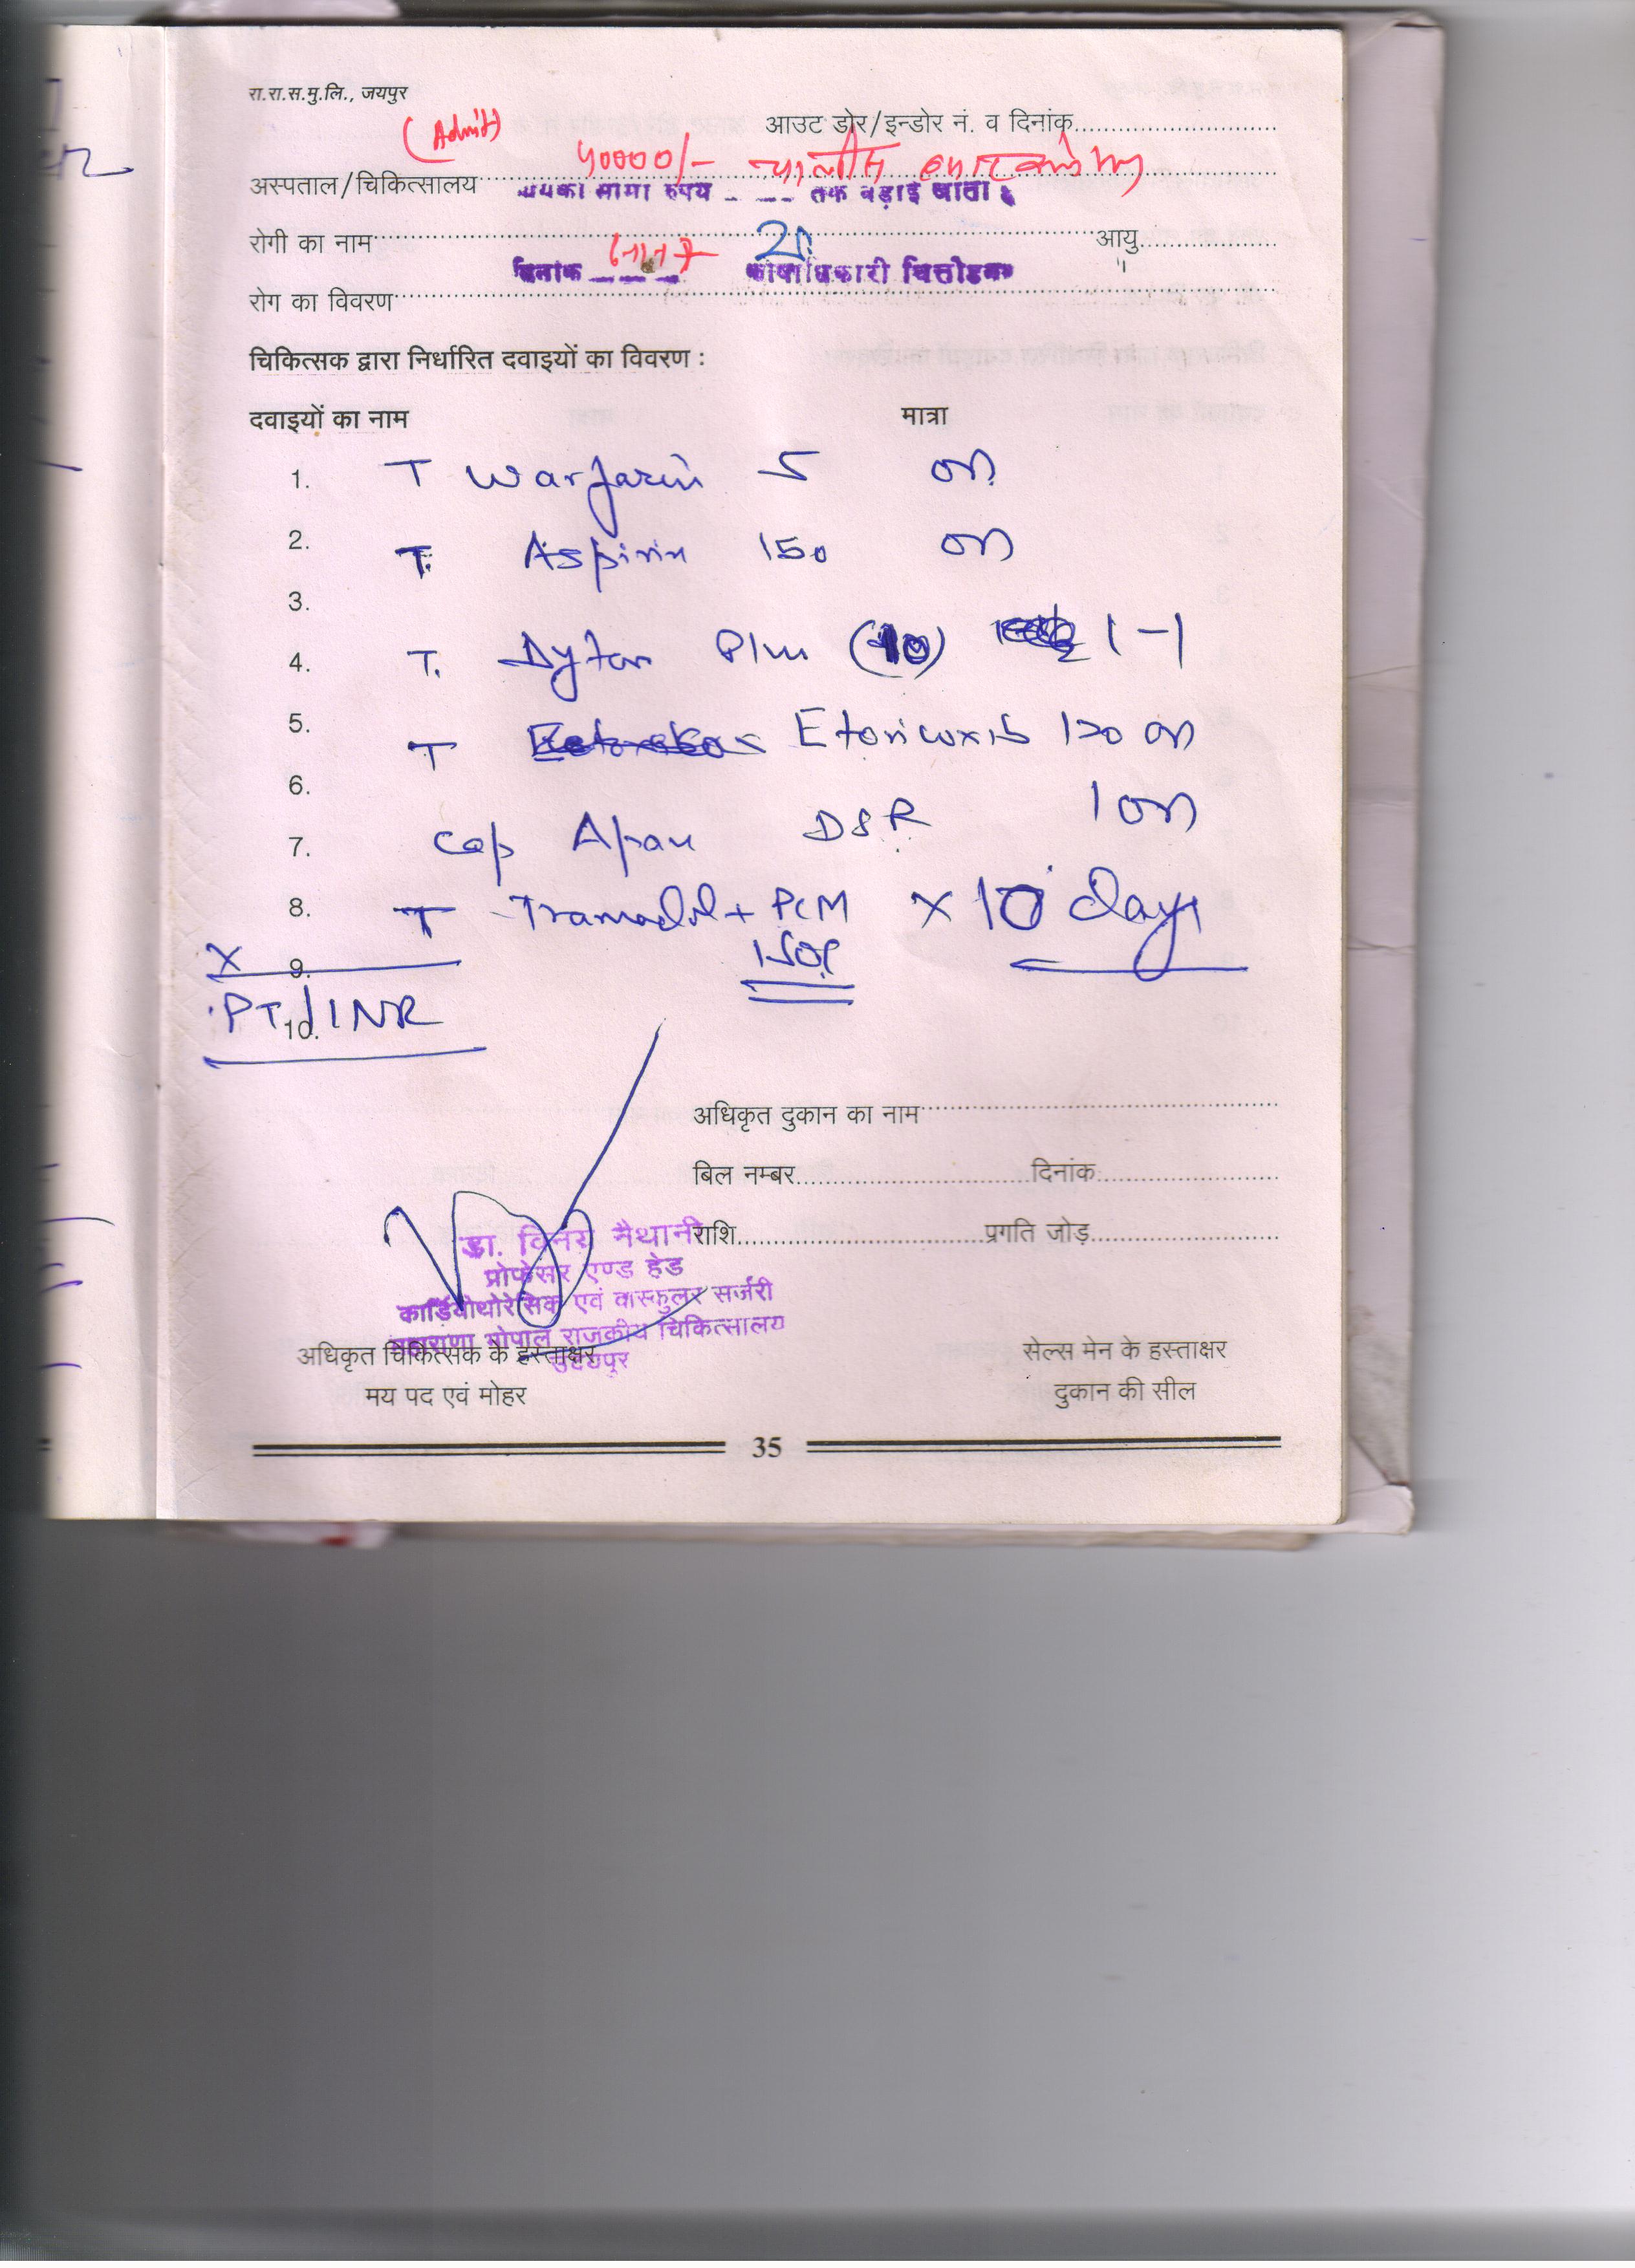 रा.रा.स.मु.लि., जयपुर
आउट डोर/इन्डोर नं. व दिनांक
(Admit)
40000/- चालीस
अस्पताल/चिकित्सालय
रुपय _ _ _ तक बड़ाई जाती
रोगी का नाम
आयु
दिनांक _ _ _ कोषाधिकारी
रोग का विवरण
चिकित्सक द्वारा निर्धारित दवाइयों का विवरण :
दवाइयों का नाम मात्रा
1. T Warfarin 5 OD
2. T. Aspirin 150 OD
3.
4. T. Dytor Plus (10) 1-1
5. T Etoricoxib 120 OD
6.
7. Cap Apan DSR 1 OD
8. T Tramadol + PCM x 10 days
X 9.
PT/INR 10.
अधिकृत दुकान का नाम
बिल नम्बर दिनांक
राशि प्रगति जोड़
डा. विनय मैथानी
प्रोफेसर एण्ड हेड
कार्डियोथोरेसिक एवं वास्कुलर सर्जरी
महाराणा भोपाल राजकीय चिकित्सालय
उदयपुर
अधिकृत चिकित्सक के हस्ताक्षर सेल्स मेन के हस्ताक्षर
मय पद एवं मोहर दुकान की सील
35